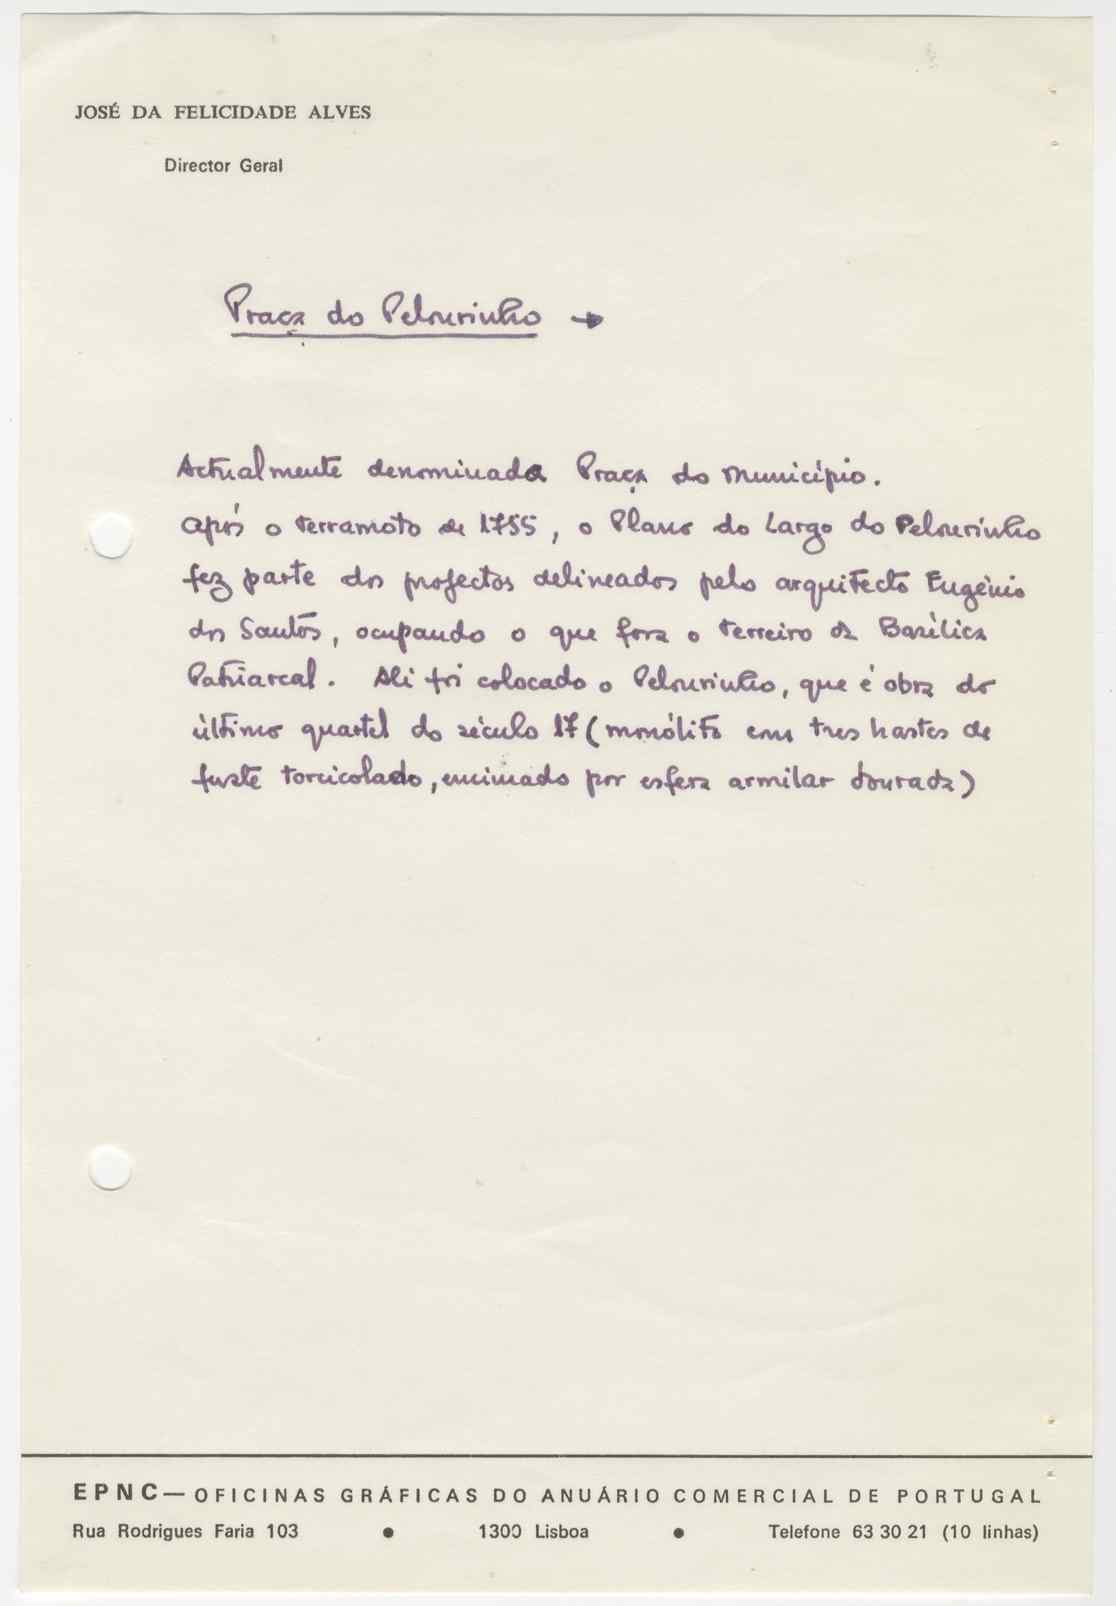 JOSÉ DA FELICIDADE ALVES
Director Geral
Praça do Pelourinho →
Actualmente denominada Praça do Município.
Após o terramoto de 1755, o Plano do Largo do Pelourinho
fez parte dos projectos delineados pelo arquitecto Eugénio
dos Santos, ocupando o que fora o terreiro da Basílica
Patriarcal. Ali foi colocado o Pelourinho, que é obra do
último quartel do século 17 (monólito em tres hastes de
fuste torcicolado, encimado por esfera armilar dourada)
EPNC — OFICINAS GRÁFICAS DO ANUÁRIO COMERCIAL DE PORTUGAL
Rua Rodrigues Faria 103 ● 1300 Lisboa ● Telefone 63 30 21 (10 linhas)